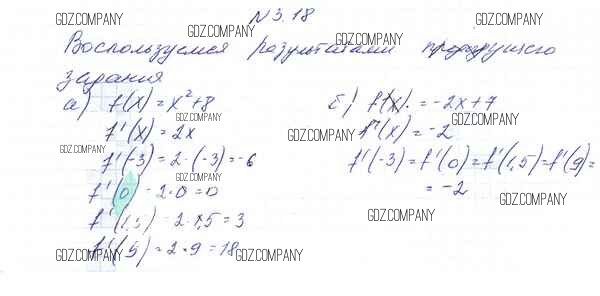 N 3.18
Воспользуемся результатами предыдущего
задания
а) f(x) = x²+8
f'(x) = 2x
f'(-3) = 2·(-3) = -6
f'(0) - 2·0 = 0
f'(1,5) - 2·1,5 = 3
f'(1,5) = 2·9 = 18
б) f(x). = -2x+7
f'(x) = -2
f'(-3) = f'(0) = f'(1,5) = f'(9) =
= -2
GDZ.COMPANY
GDZ.COMPANY
GDZ.COMPANY
GDZ.COMPANY
GDZ.COMPANY
GDZ.COMPANY
GDZ.COMPANY
GDZ.COMPANY
GDZ.COMPANY
GDZ.COMPANY
GDZ.COMPANY
GDZ.COMPANY
GDZ.COMPANY